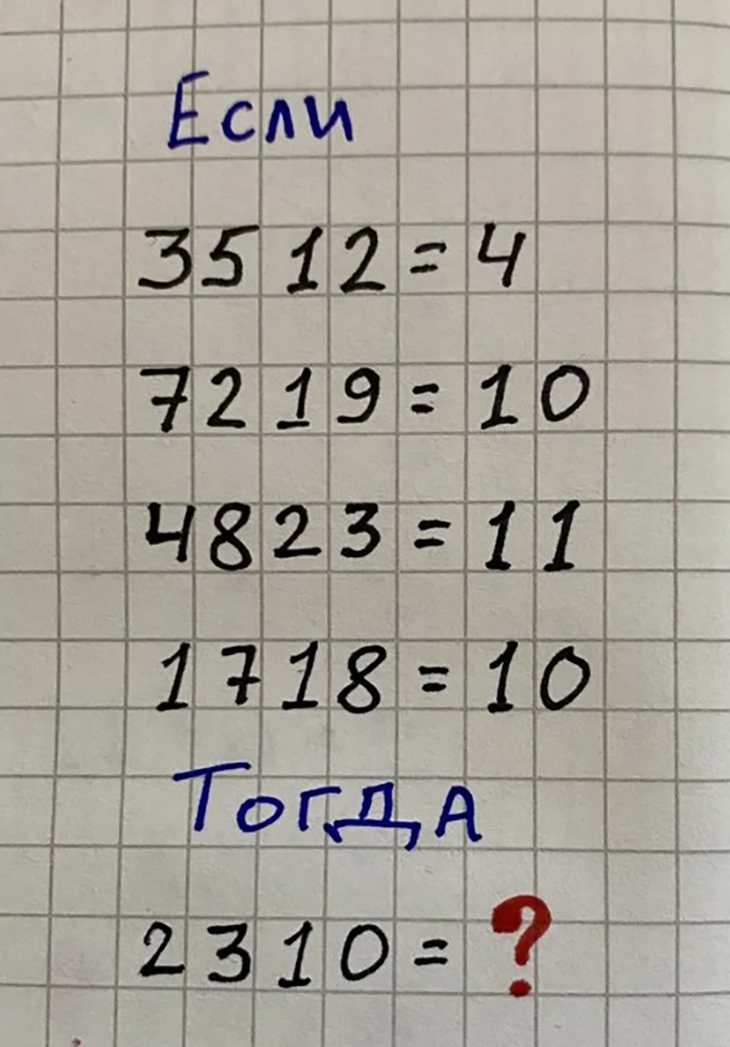 Если
3512 = 4
7219 = 10
4823 = 11
1718 = 10
Тогда
2310 = ?